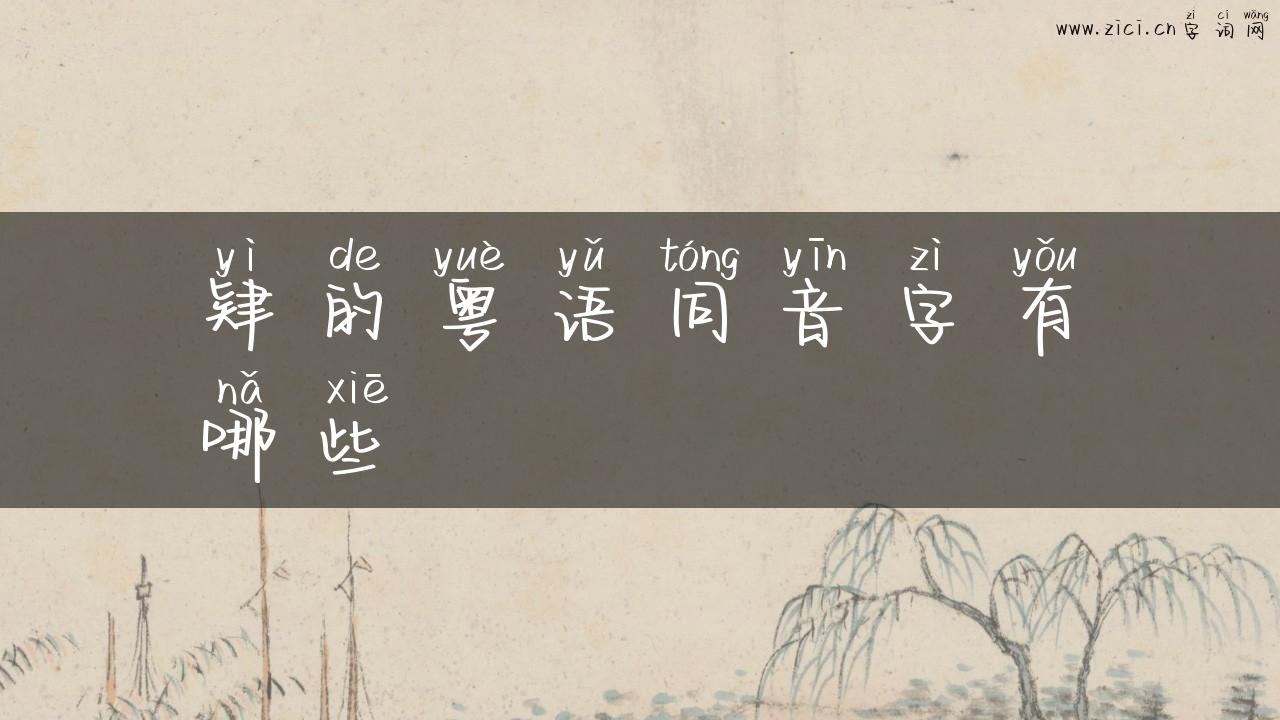 zì cí wǎng
www.zici.cn 字词网
yì de yuè yǔ tóng yīn zì yǒu
肄的粤语同音字有
nǎ xiē
哪些